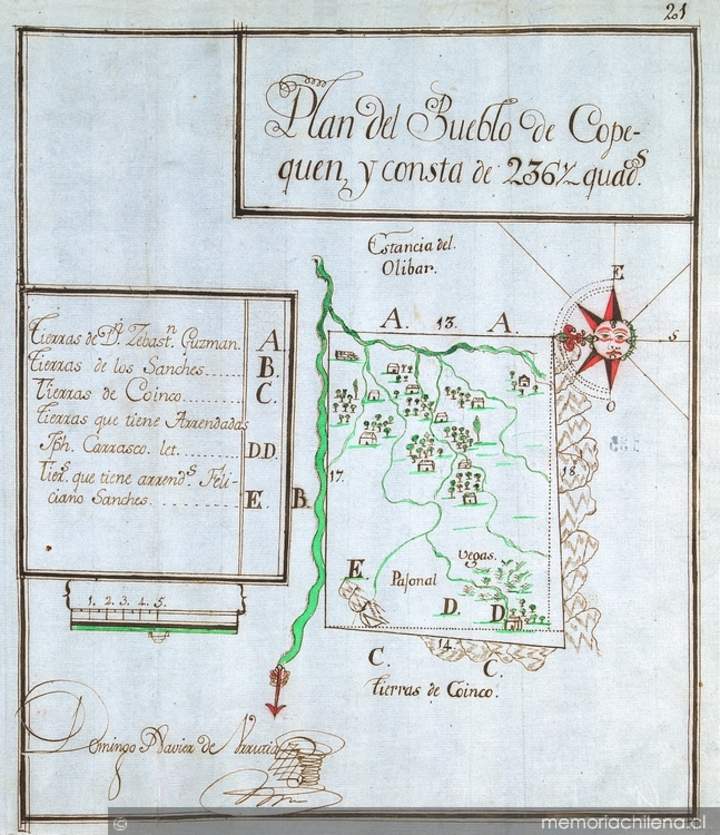 21
Plan del Pueblo de Cope-
quen, y consta de 236½ quad.s
Estancia del
Olibar.
E
S
O
A. 13. A.
Tierras de D.n Zebast.n Guzman. A
Tierras de los Sanches...... B.
Tierras de Coinco........ C.
Tierras que tiene Arrendadas
Jph. Carrasco. let. ......... D.D.
Tier.s que tiene arrend.s Feli-
ciano Sanches. ........... E.
B.
17.
18.
E
Pajonal
Vegas.
D. D.
14.
C. C.
Tierras de Coinco.
1. 2. 3. 4. 5.
Domingo Xavier de Urrutia
memoriachilena.cl